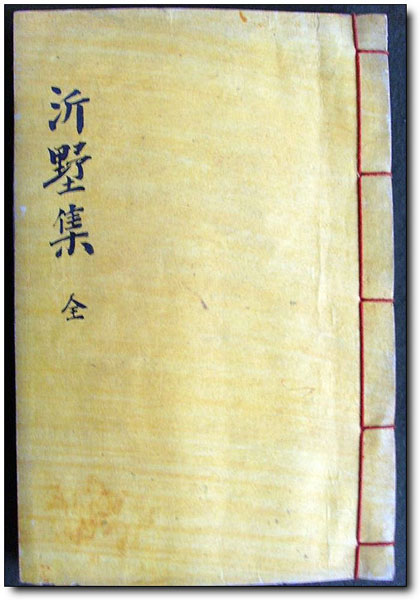 沂墅集 全